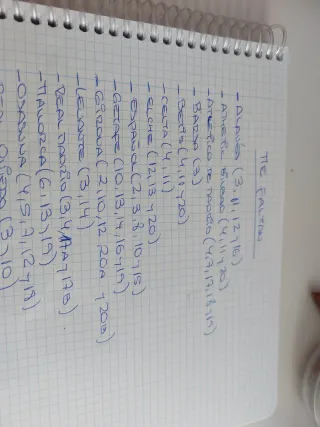 ME FALTAN
- ALAVÉS (3, 11, 12 y 16)
- ATHLETIC BILBAO (4, 11 y 20)
- ATLETICO DE MADRID (4, 7, 17, 18 y 19)
- BARÇA (3)
- BETIS (4, 11 y 20)
- CELTA (4, 11)
- ELCHE (12, 13 y 20)
- ESPAÑOL (2, 3, 8, 10 y 18)
- GETAFE (10, 13, 14, 16 y 19)
- GIRONA (2, 10, 12, 20A y 20B)
- LEVANTE (3, 14)
- REAL MADRID (3, 4, 17A y 17B).
- MALLORCA (6, 13 y 19)
- OSASUNA (4, 5, 7, 12 y 18)
- REAL OVIEDO (3 y 10)